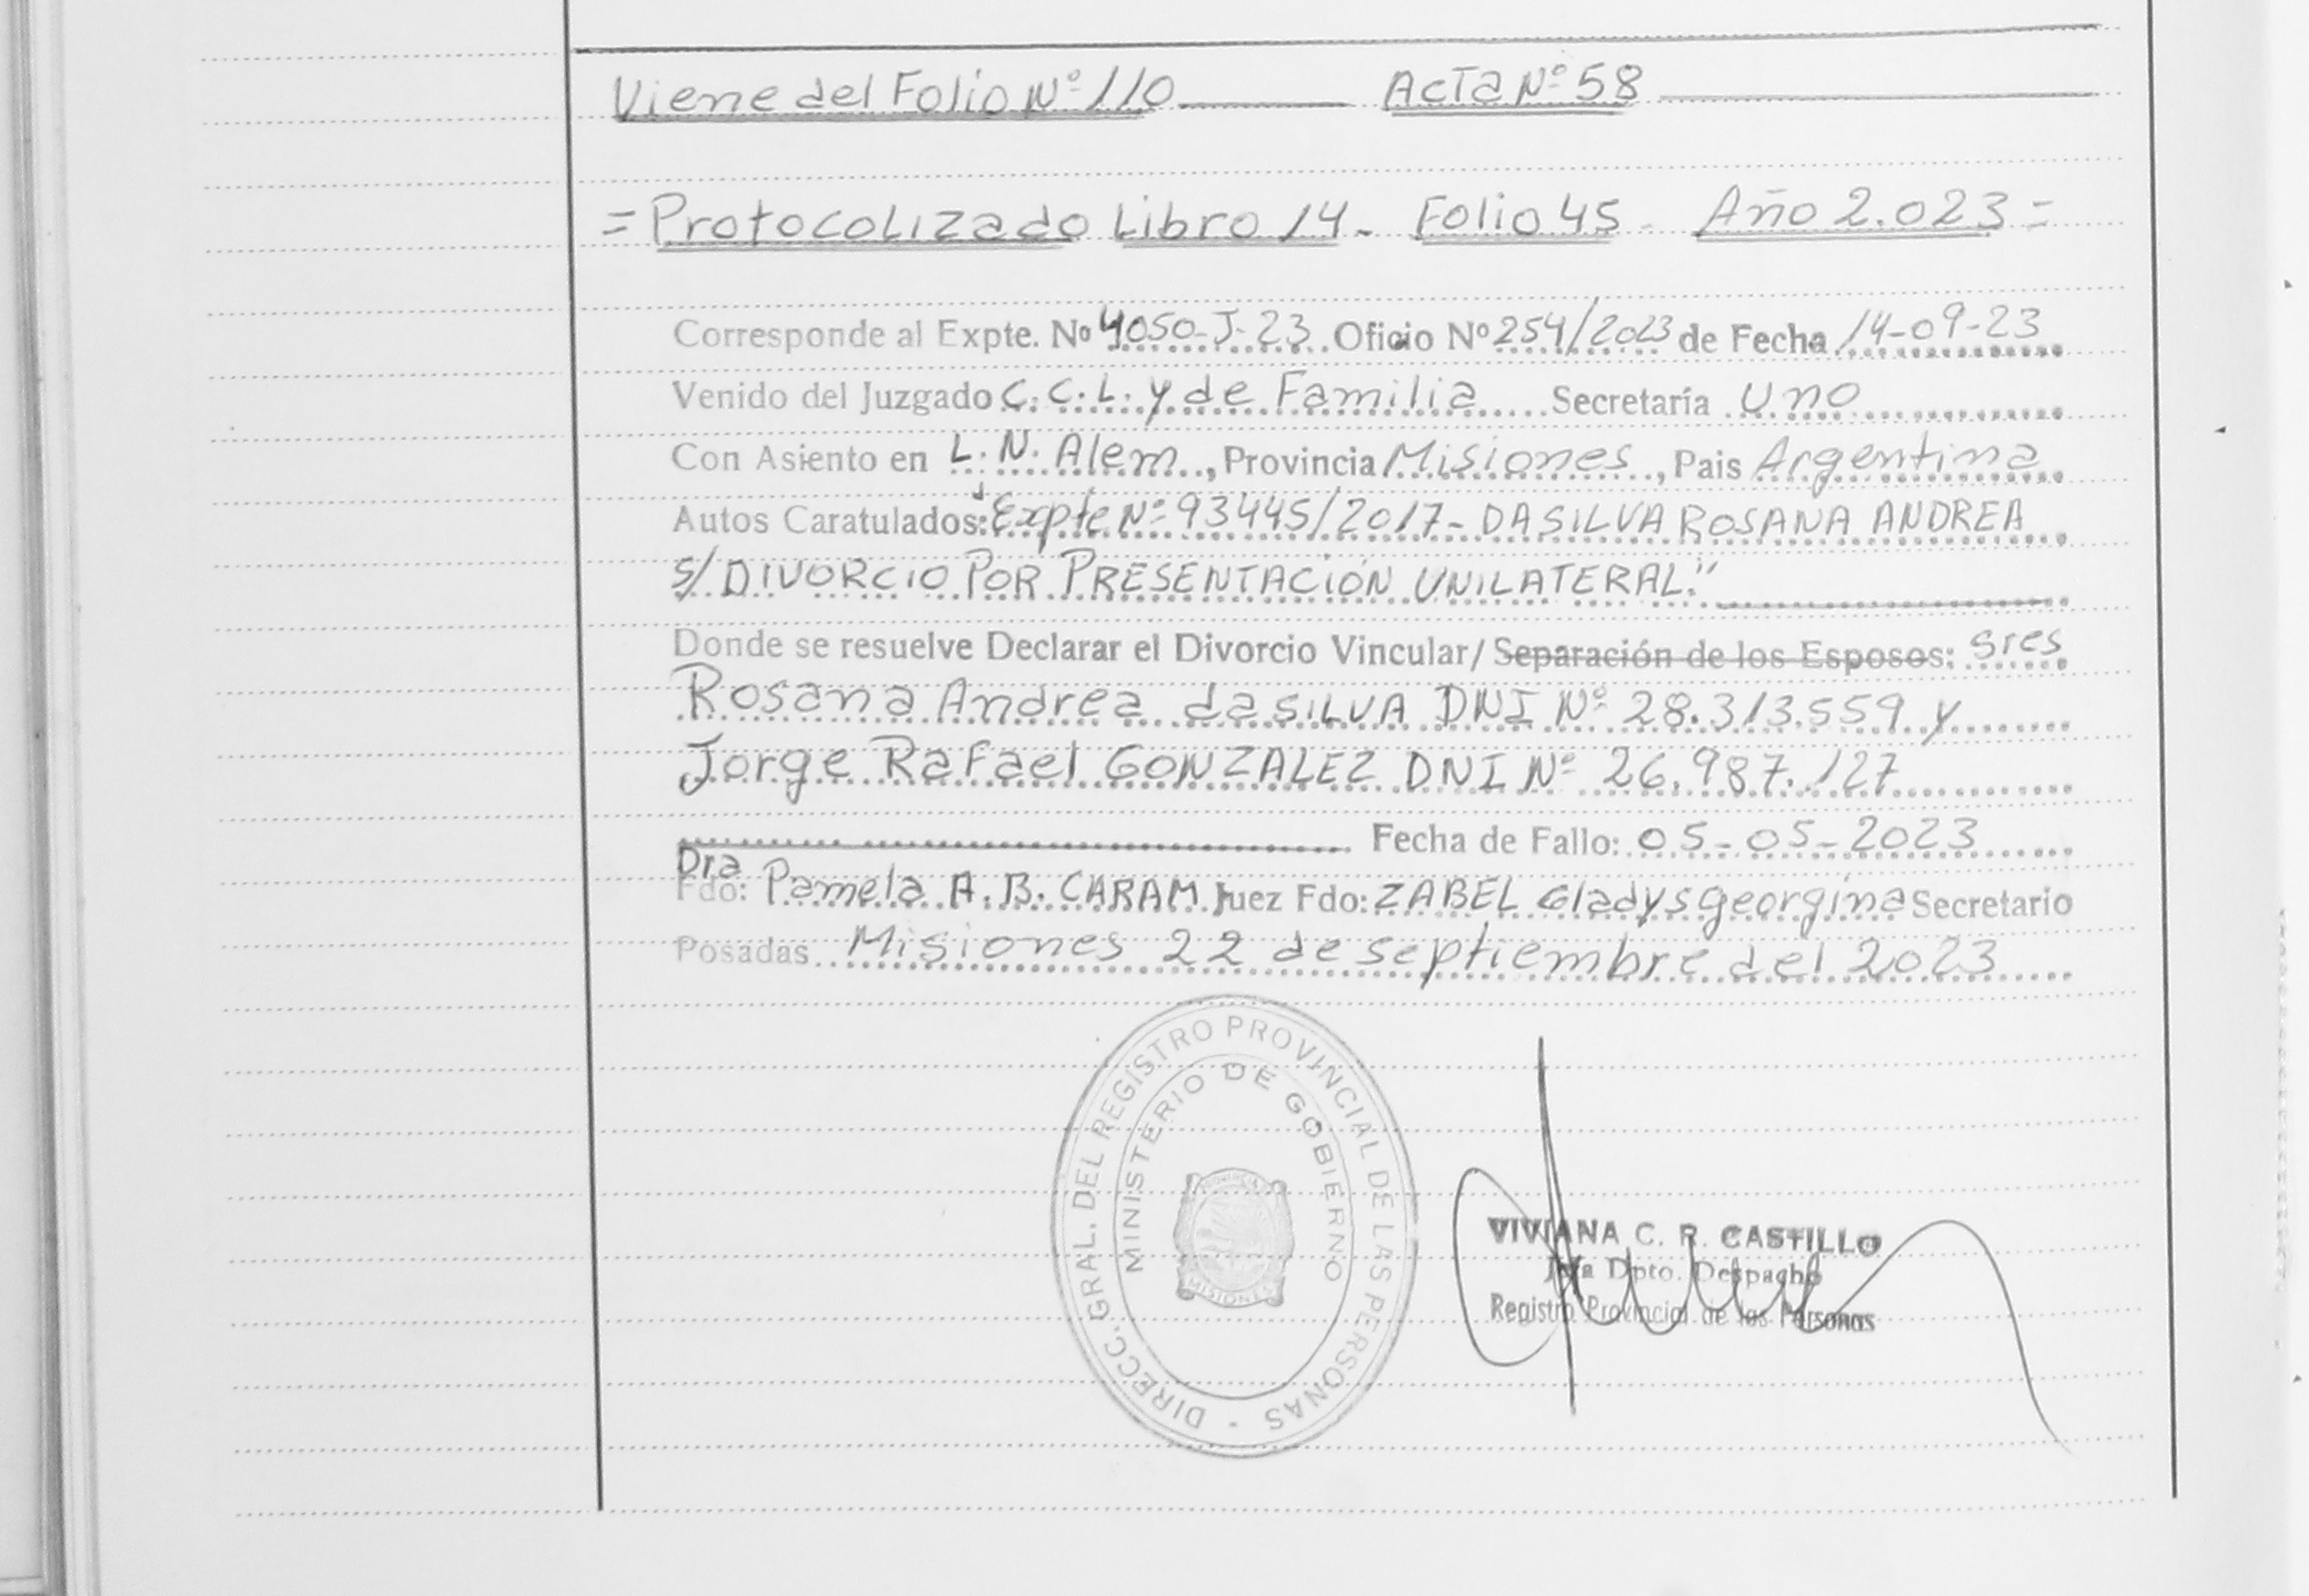 Viene del Folio Nº 110 Acta Nº 58
= Protocolizado Libro 14 - Folio 45 - Año 2.023 =
Corresponde al Expte. Nº 4050-J-23 Oficio Nº 254/2023 de Fecha 14-09-23
Venido del Juzgado C.C.L. y de Familia Secretaría Uno
Con Asiento en L.N. Alem, Provincia Misiones, Pais Argentina
Autos Caratulados: "Expte Nº 93445/2017- DASILVA ROSANA ANDREA
S/ DIVORCIO POR PRESENTACIÓN UNILATERAL."
Donde se resuelve Declarar el Divorcio Vincular/ Separación de los Esposos: sres
Rosana Andrea daSILVA DNI Nº 28.313.559 y
Jorge Rafael GONZALEZ DNI Nº 26.987.127
Fecha de Fallo: 05-05-2023
Dra
Fdo: Pamela A.B. CARAM Juez Fdo: ZABEL Gladys georgina Secretario
Posadas Misiones 22 de septiembre del 2023
DIRECC. GRAL. DEL REGISTRO PROVINCIAL DE LAS PERSONAS -
MINISTERIO DE GOBIERNO
PROVINCIA DE
MISIONES
VIVIANA C. R. CASTILLO
Jefa Dpto. Despacho
Registro Provincial de las Personas